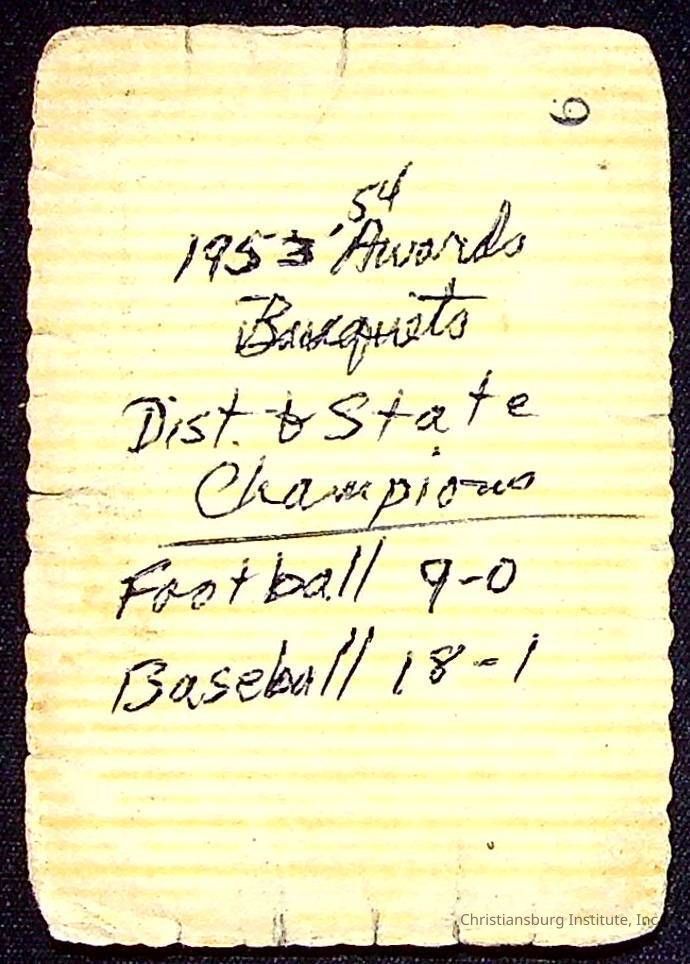 6
54
1953' Awards
Banquets
Dist. & State
Champions
Football 9-0
Baseball 18-1
Christiansburg Institute, Inc